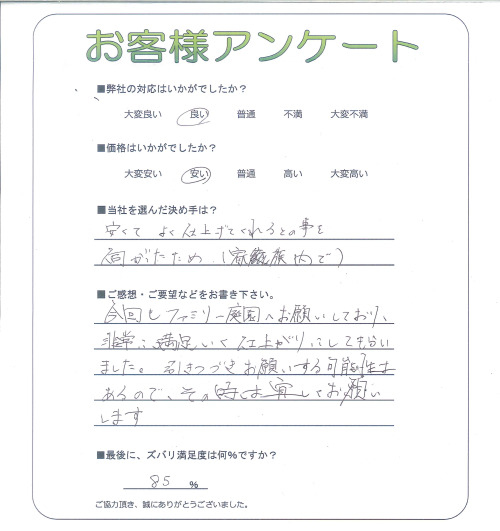 お客様アンケート
■弊社の対応はいかがでしたか？
大変良い 良い 普通 不満 大変不満
■価格はいかがでしたか？
大変安い 安い 普通 高い 大変高い
■当社を選んだ決め手は？
安くて よく仕上げてくれるとの事を
伺がたため（家族内で）
■ご感想・ご要望などをお書き下さい。
今回もファミリー庭園へお願いしており、
非常に満足いく仕上がりにしてもらい
ました。引きつづきお願いする可能性は
あるので、その時は宜しくお願い
します
■最後に、ズバリ満足度は何%ですか？
85 %
ご協力頂き、誠にありがとうございました。